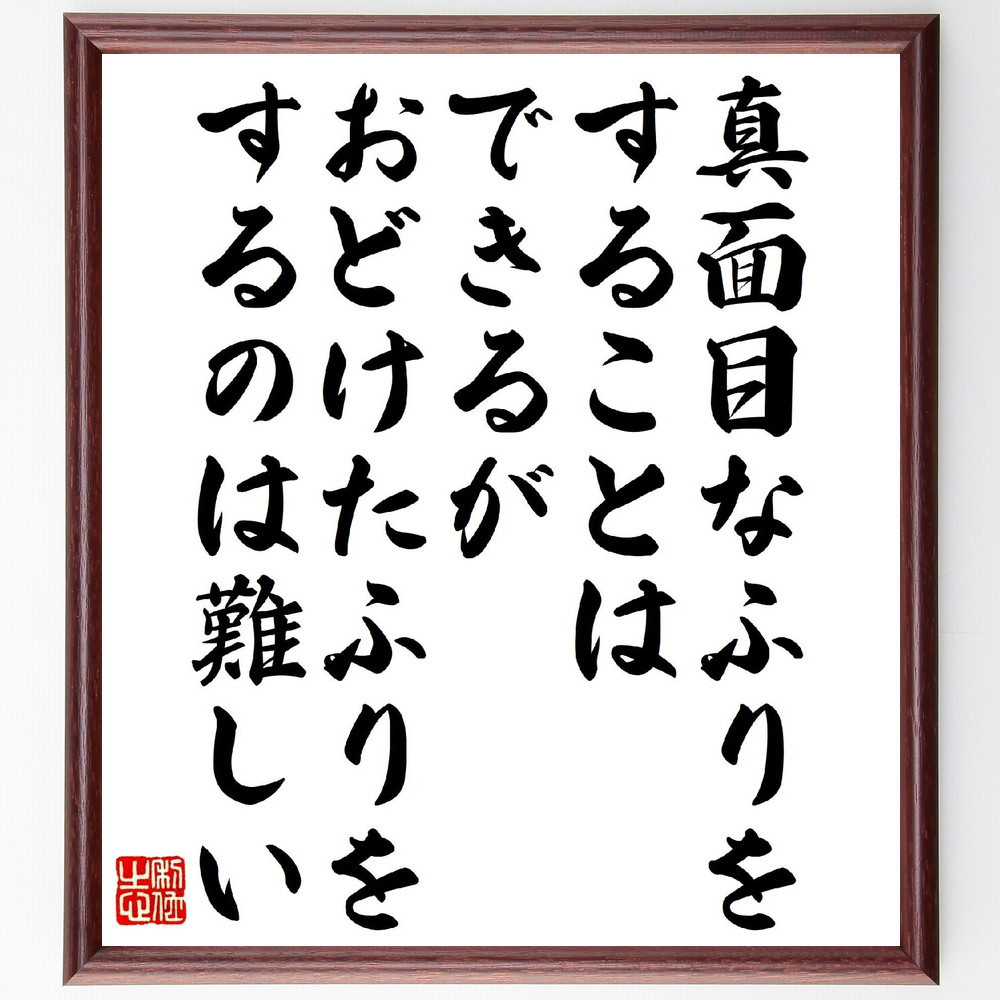 真面目なふりを
することは
できるが
おどけたふりを
するのは難しい